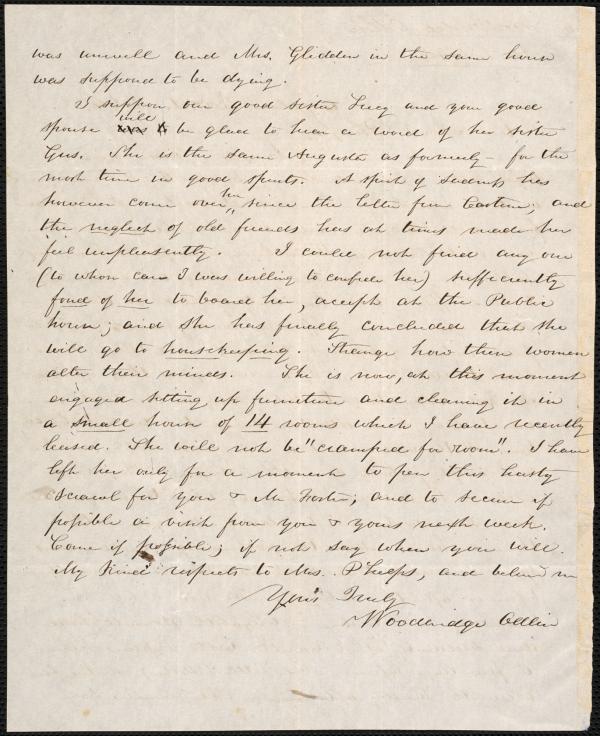 was unwell and Mrs. Glidden in the same house
was supposed to be dying.
I suppose our good sister Lucy and your good
spouse will be glad to hear a word of her sister
Gus. She is the same Augusta as formerly - for the
most time in good spirits. A spirit of sadness has
however come over her, since the letter from Eastern; and
the neglect of old friends has at times made her
feel unpleasantly. I could not find any one
(to whose care I was willing to confide her) sufficiently
fond of her to board her, accept at the Public
house; and she has finally concluded that she
will go to housekeeping. Strange how these women
alter their minds. She is now, at this moment
engaged setting up furniture and cleaning it in
a small house of 14 rooms which I have recently
leased. She will not be "cramped for room". I have
left her only for a moment to pen this hasty
scrawl for you & Mr Foster; and to secure if
possible a visit from you & yours next week.
Come if possible; if not say when you will.
My kind respects to Mrs. Phelps, and believe me
Yours Truly
Woodbridge Odlin